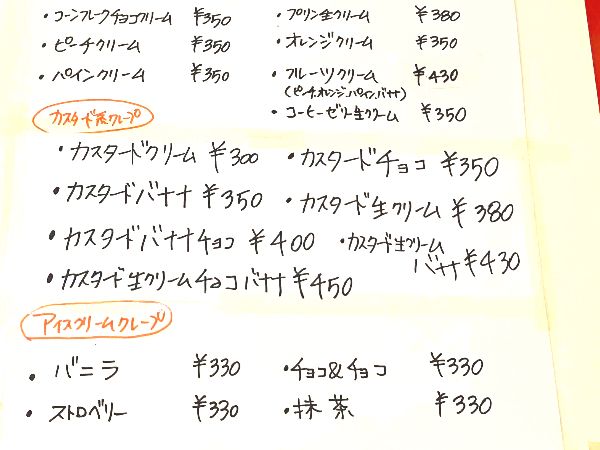 ・コーンフレークチョコクリーム ¥350
・プリン生クリーム ¥380
・ピーチクリーム ¥350
・オレンジクリーム ¥350
・パインクリーム ¥350
・フルーツクリーム ¥430
(ピーチ.オレンジ.パイン.バナナ)
・コーヒーゼリー生クリーム ¥350
カスタード系クレープ
・カスタードクリーム ¥300
・カスタードチョコ ¥350
・カスタードバナナ ¥350
・カスタード生クリーム ¥380
・カスタードバナナチョコ ¥400
・カスタード生クリーム
バナナ ¥430
・カスタード生クリームチョコバナナ ¥450
アイスクリームクレープ
・バニラ ¥330
・チョコ&チョコ ¥330
・ストロベリー ¥330
・抹茶 ¥330